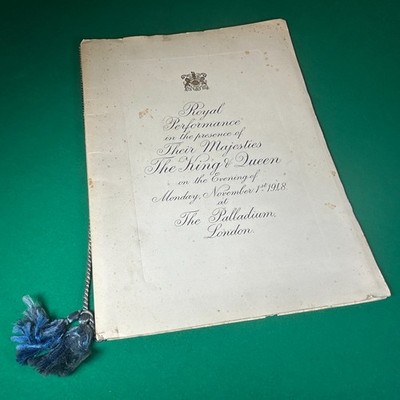 Royal
Performance
in the presence of
Their Majesties
The King & Queen
on the Evening of
Monday, November 1st 1948
at
The Palladium,
London.